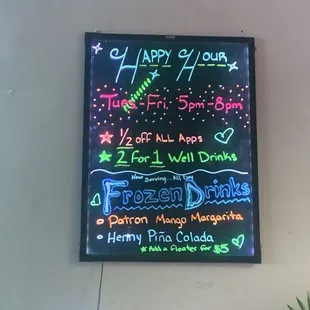 Happy Hour
Tues-Fri. 5pm-8pm
1/2 off ALL Apps
2 For 1 Well Drinks
Now Serving... All Day
Frozen Drinks
Patron Mango Margarita
Henny Piña Colada
Add a floater for $5